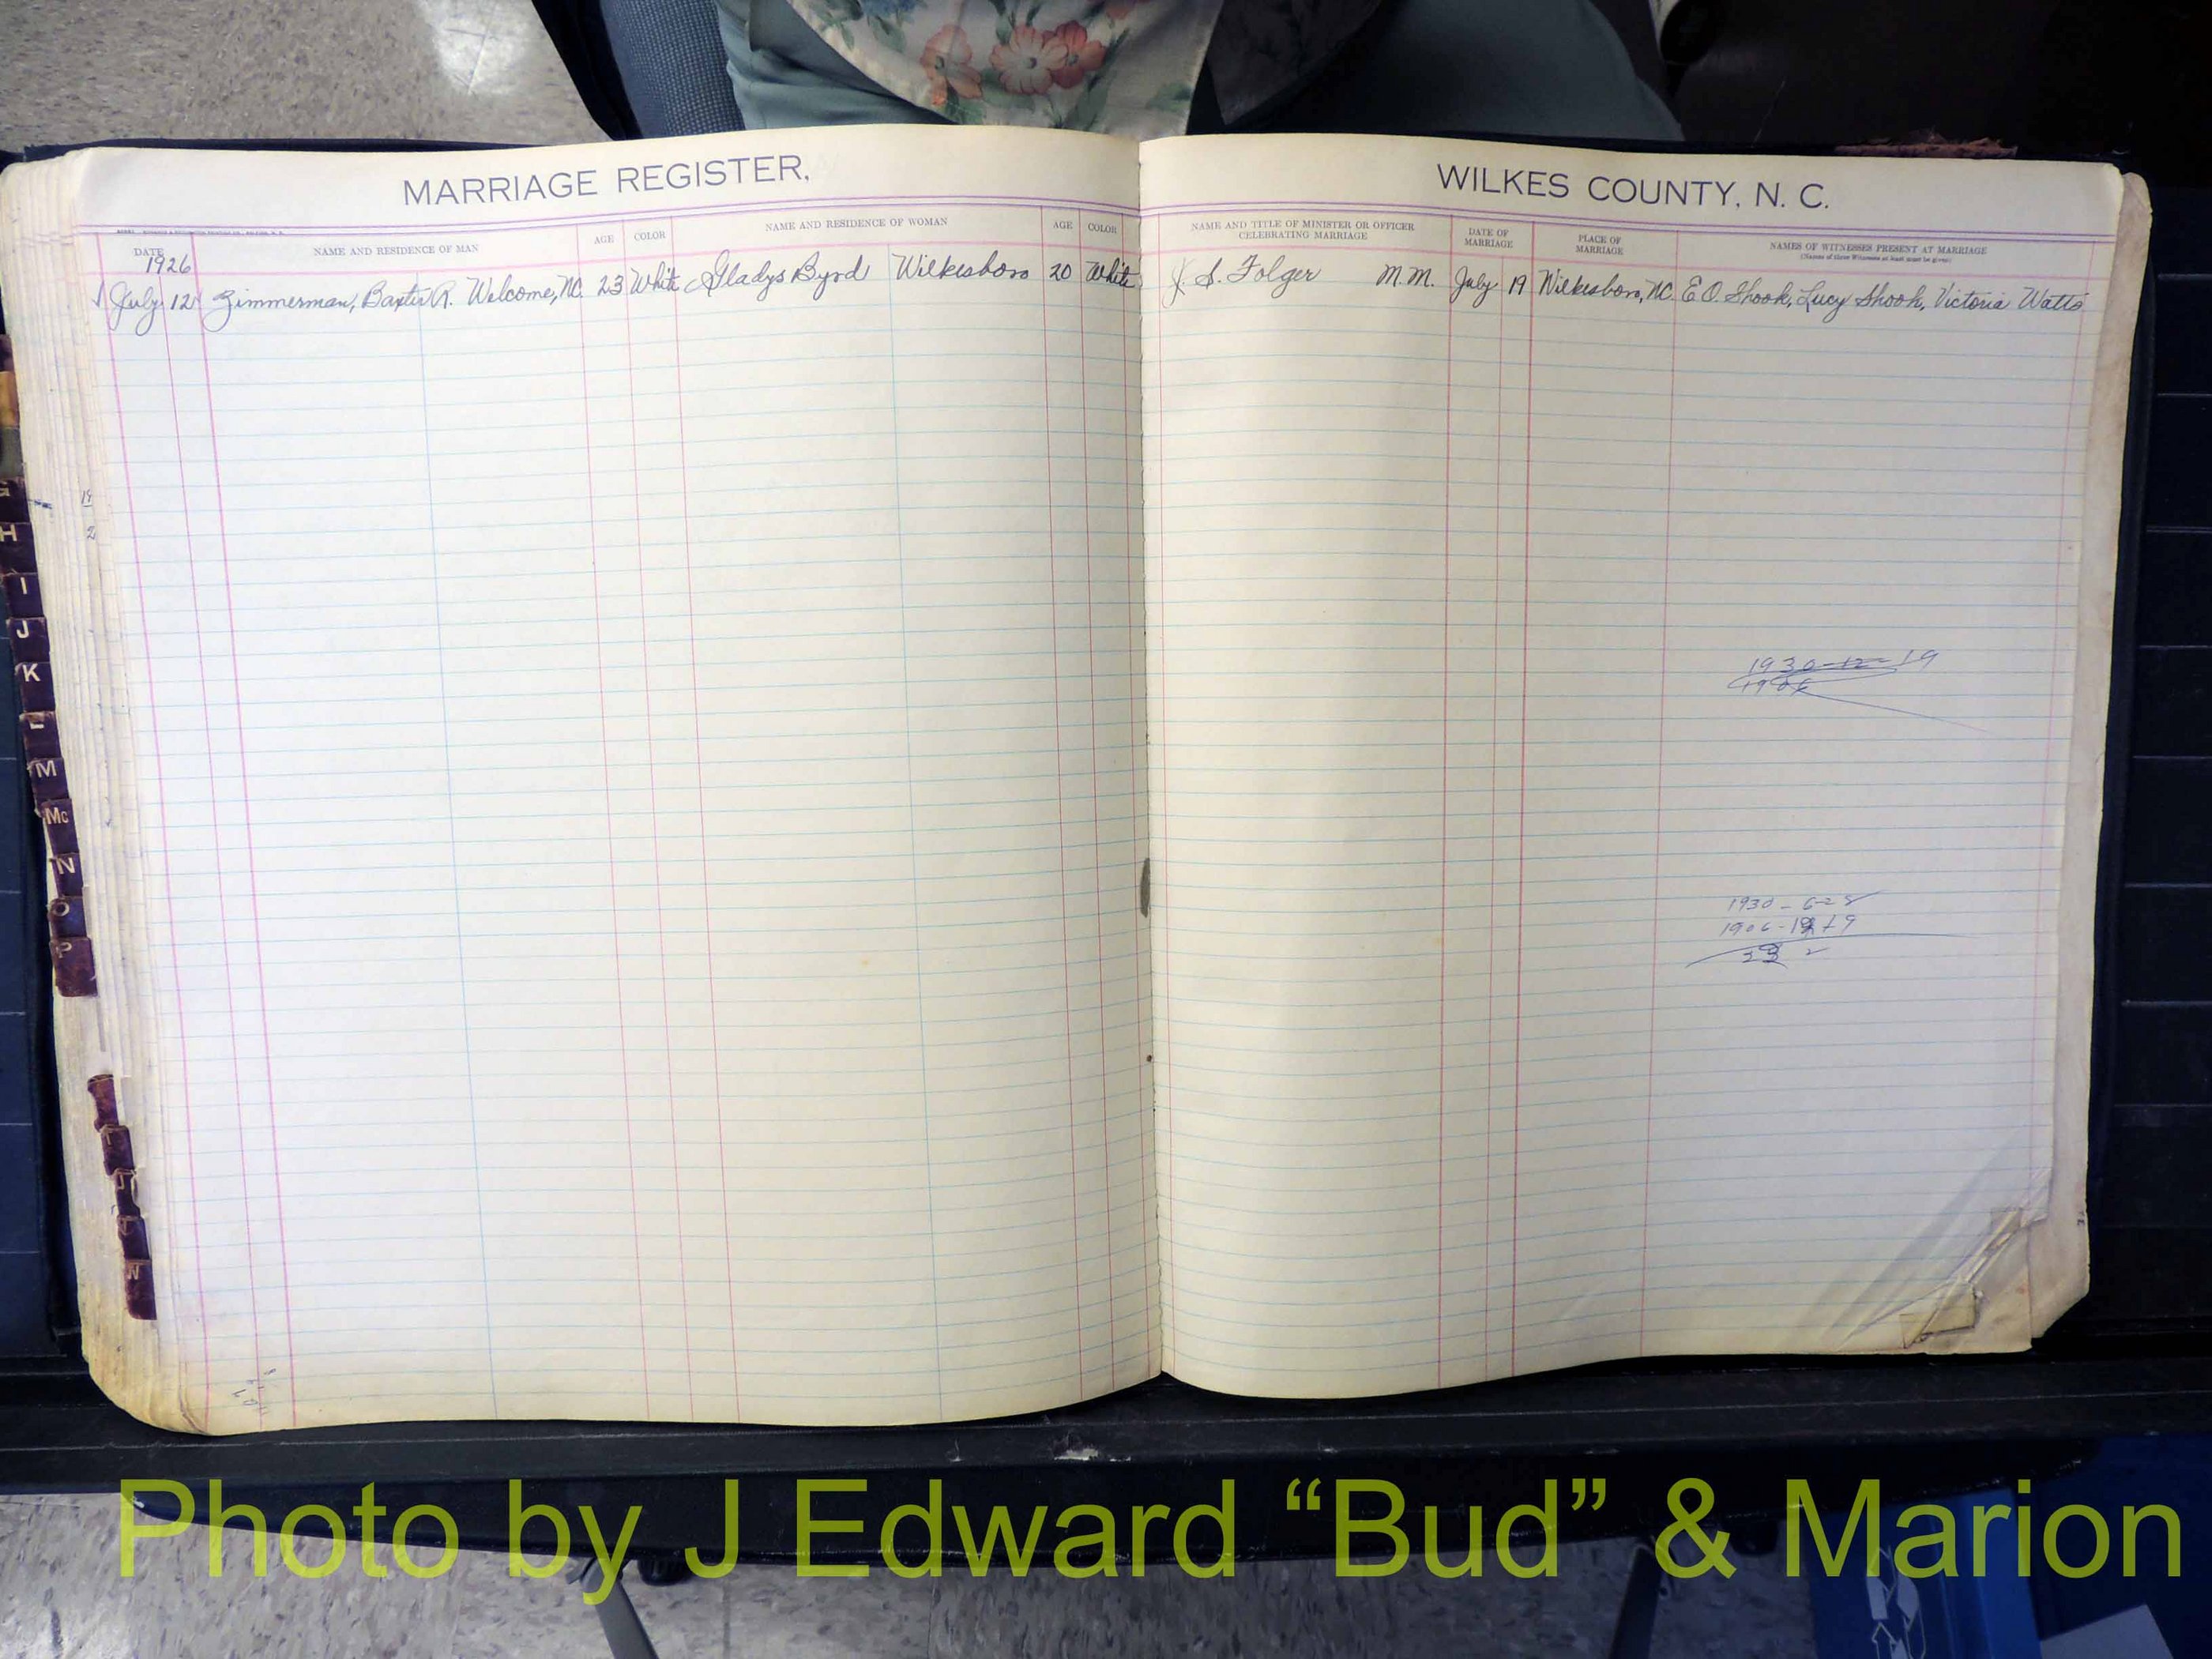 MARRIAGE REGISTER,
WILKES COUNTY, N. C.
DATE NAME AND RESIDENCE OF MAN AGE COLOR NAME AND RESIDENCE OF WOMAN AGE COLOR
NAME AND TITLE OF MINISTER OR OFFICER CELEBRATING MARRIAGE DATE OF MARRIAGE PLACE OF MARRIAGE NAMES OF WITNESSES PRESENT AT MARRIAGE
(Names of three Witnesses at least must be given)
1926
July 12 Zimmerman, Baxter R. Welcome, NC. 23 White Gladys Byrd Wilkesboro 20 White
J. S. Folger M.M. July 19 Wilkesboro, NC. E O. Shook, Lucy Shook, Victoria Watts
1930-12-19
1906
1930 - 6-28
1906 - 19
G
H
I
J
K
L
M
Mc
N
O
P
T
W
Photo by J Edward “Bud” & Marion